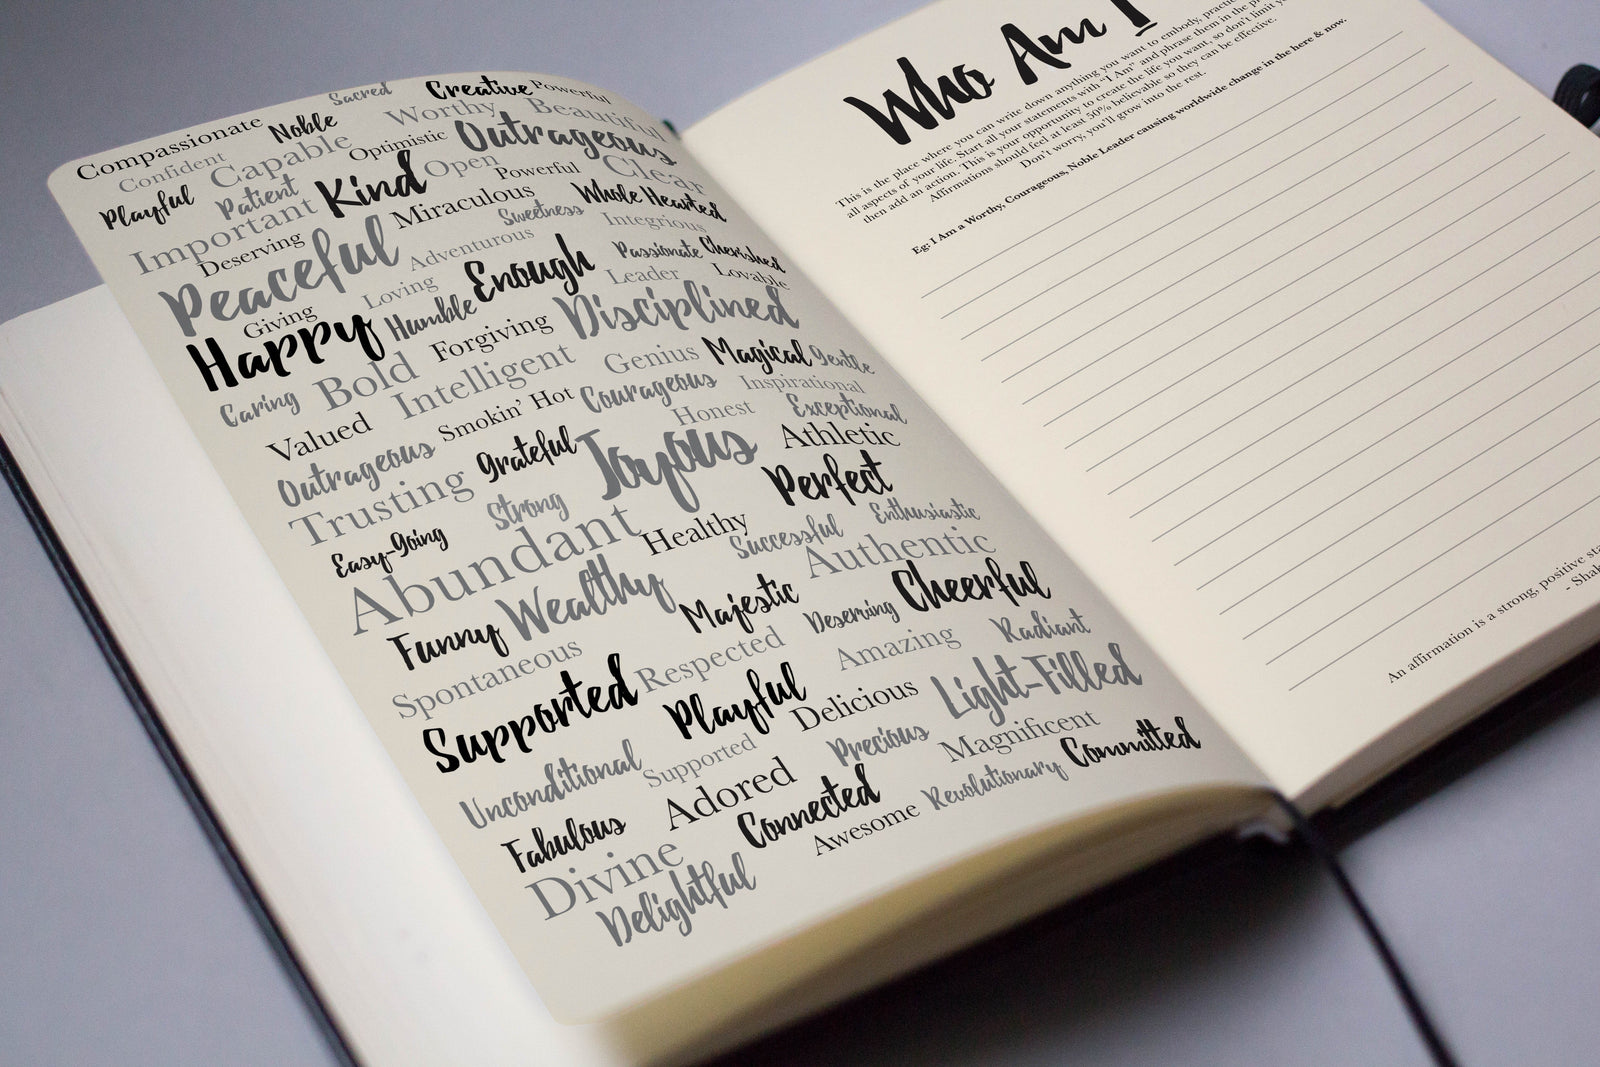 Sacred Creative Powerful
Compassionate Noble Worthy Beautiful
Confident Capable Optimistic Outrageous
Playful Patient Kind Open Powerful Clear
Important Miraculous Whole Hearted
Deserving Sweetness Integrious
Peaceful Adventurous Passionate Cherished
Giving Loving Enough Leader Lovable
Happy Humble Forgiving Disciplined
Caring Bold Intelligent Genius Magical Gentle
Valued Smokin' Hot Courageous Inspirational
Outrageous Grateful Honest Exceptional
Trusting Joyous Athletic
Easy-Going Strong Perfect
Abundant Healthy Successful Enthusiastic
Funny Wealthy Authentic
Spontaneous Majestic Deserving Cheerful
Supported Respected Amazing Radiant
Playful Delicious Light-Filled
Unconditional Supported Precious Magnificent
Fabulous Adored Connected Revolutionary Committed
Divine Awesome
Delightful
Who Am I
This is the place where you can write down anything you want to embody, practi
all aspects of your life. Start all your statements with "I Am" and phrase them in the pr
then add an action. This is your opportunity to create the life you want, so don't limit y
Affirmations should feel at least 50% believable so they can be effective.
Don't worry, you'll grow into the rest.
Eg: I Am a Worthy, Courageous, Noble Leader causing worldwide change in the here & now.
An affirmation is a strong, positive sta
- Shak